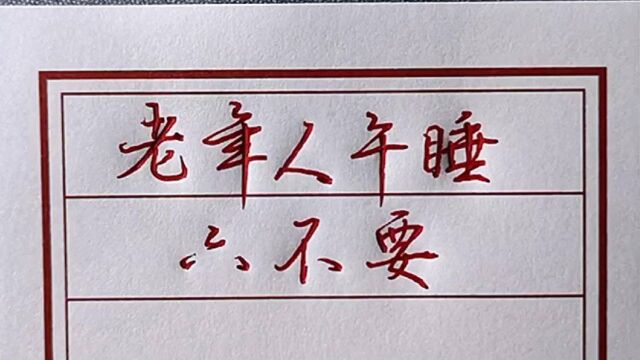 老年人午睡
六不要